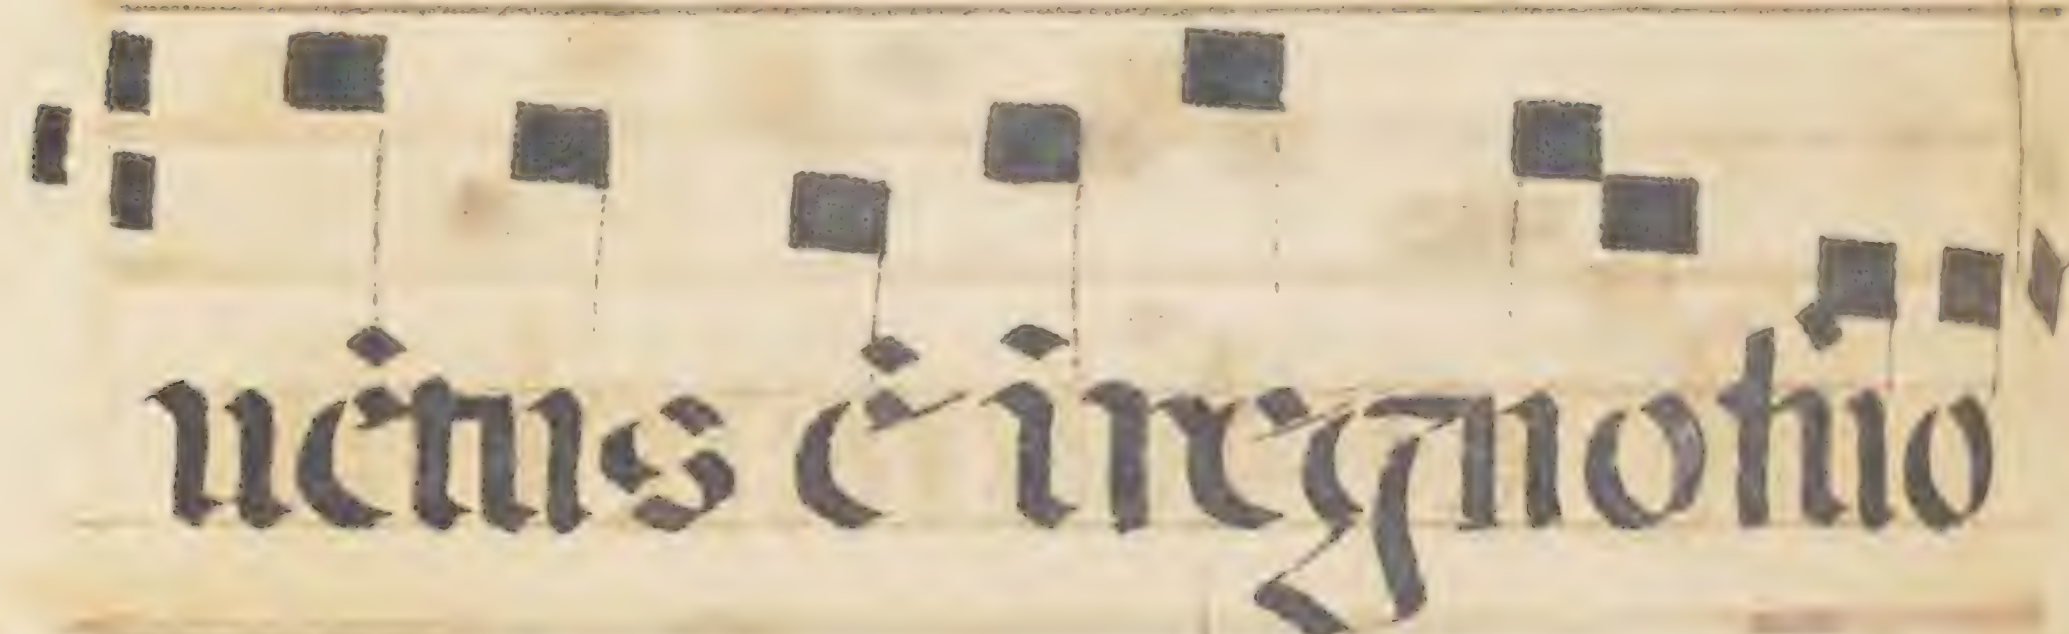 uctus ē ī regno tuo